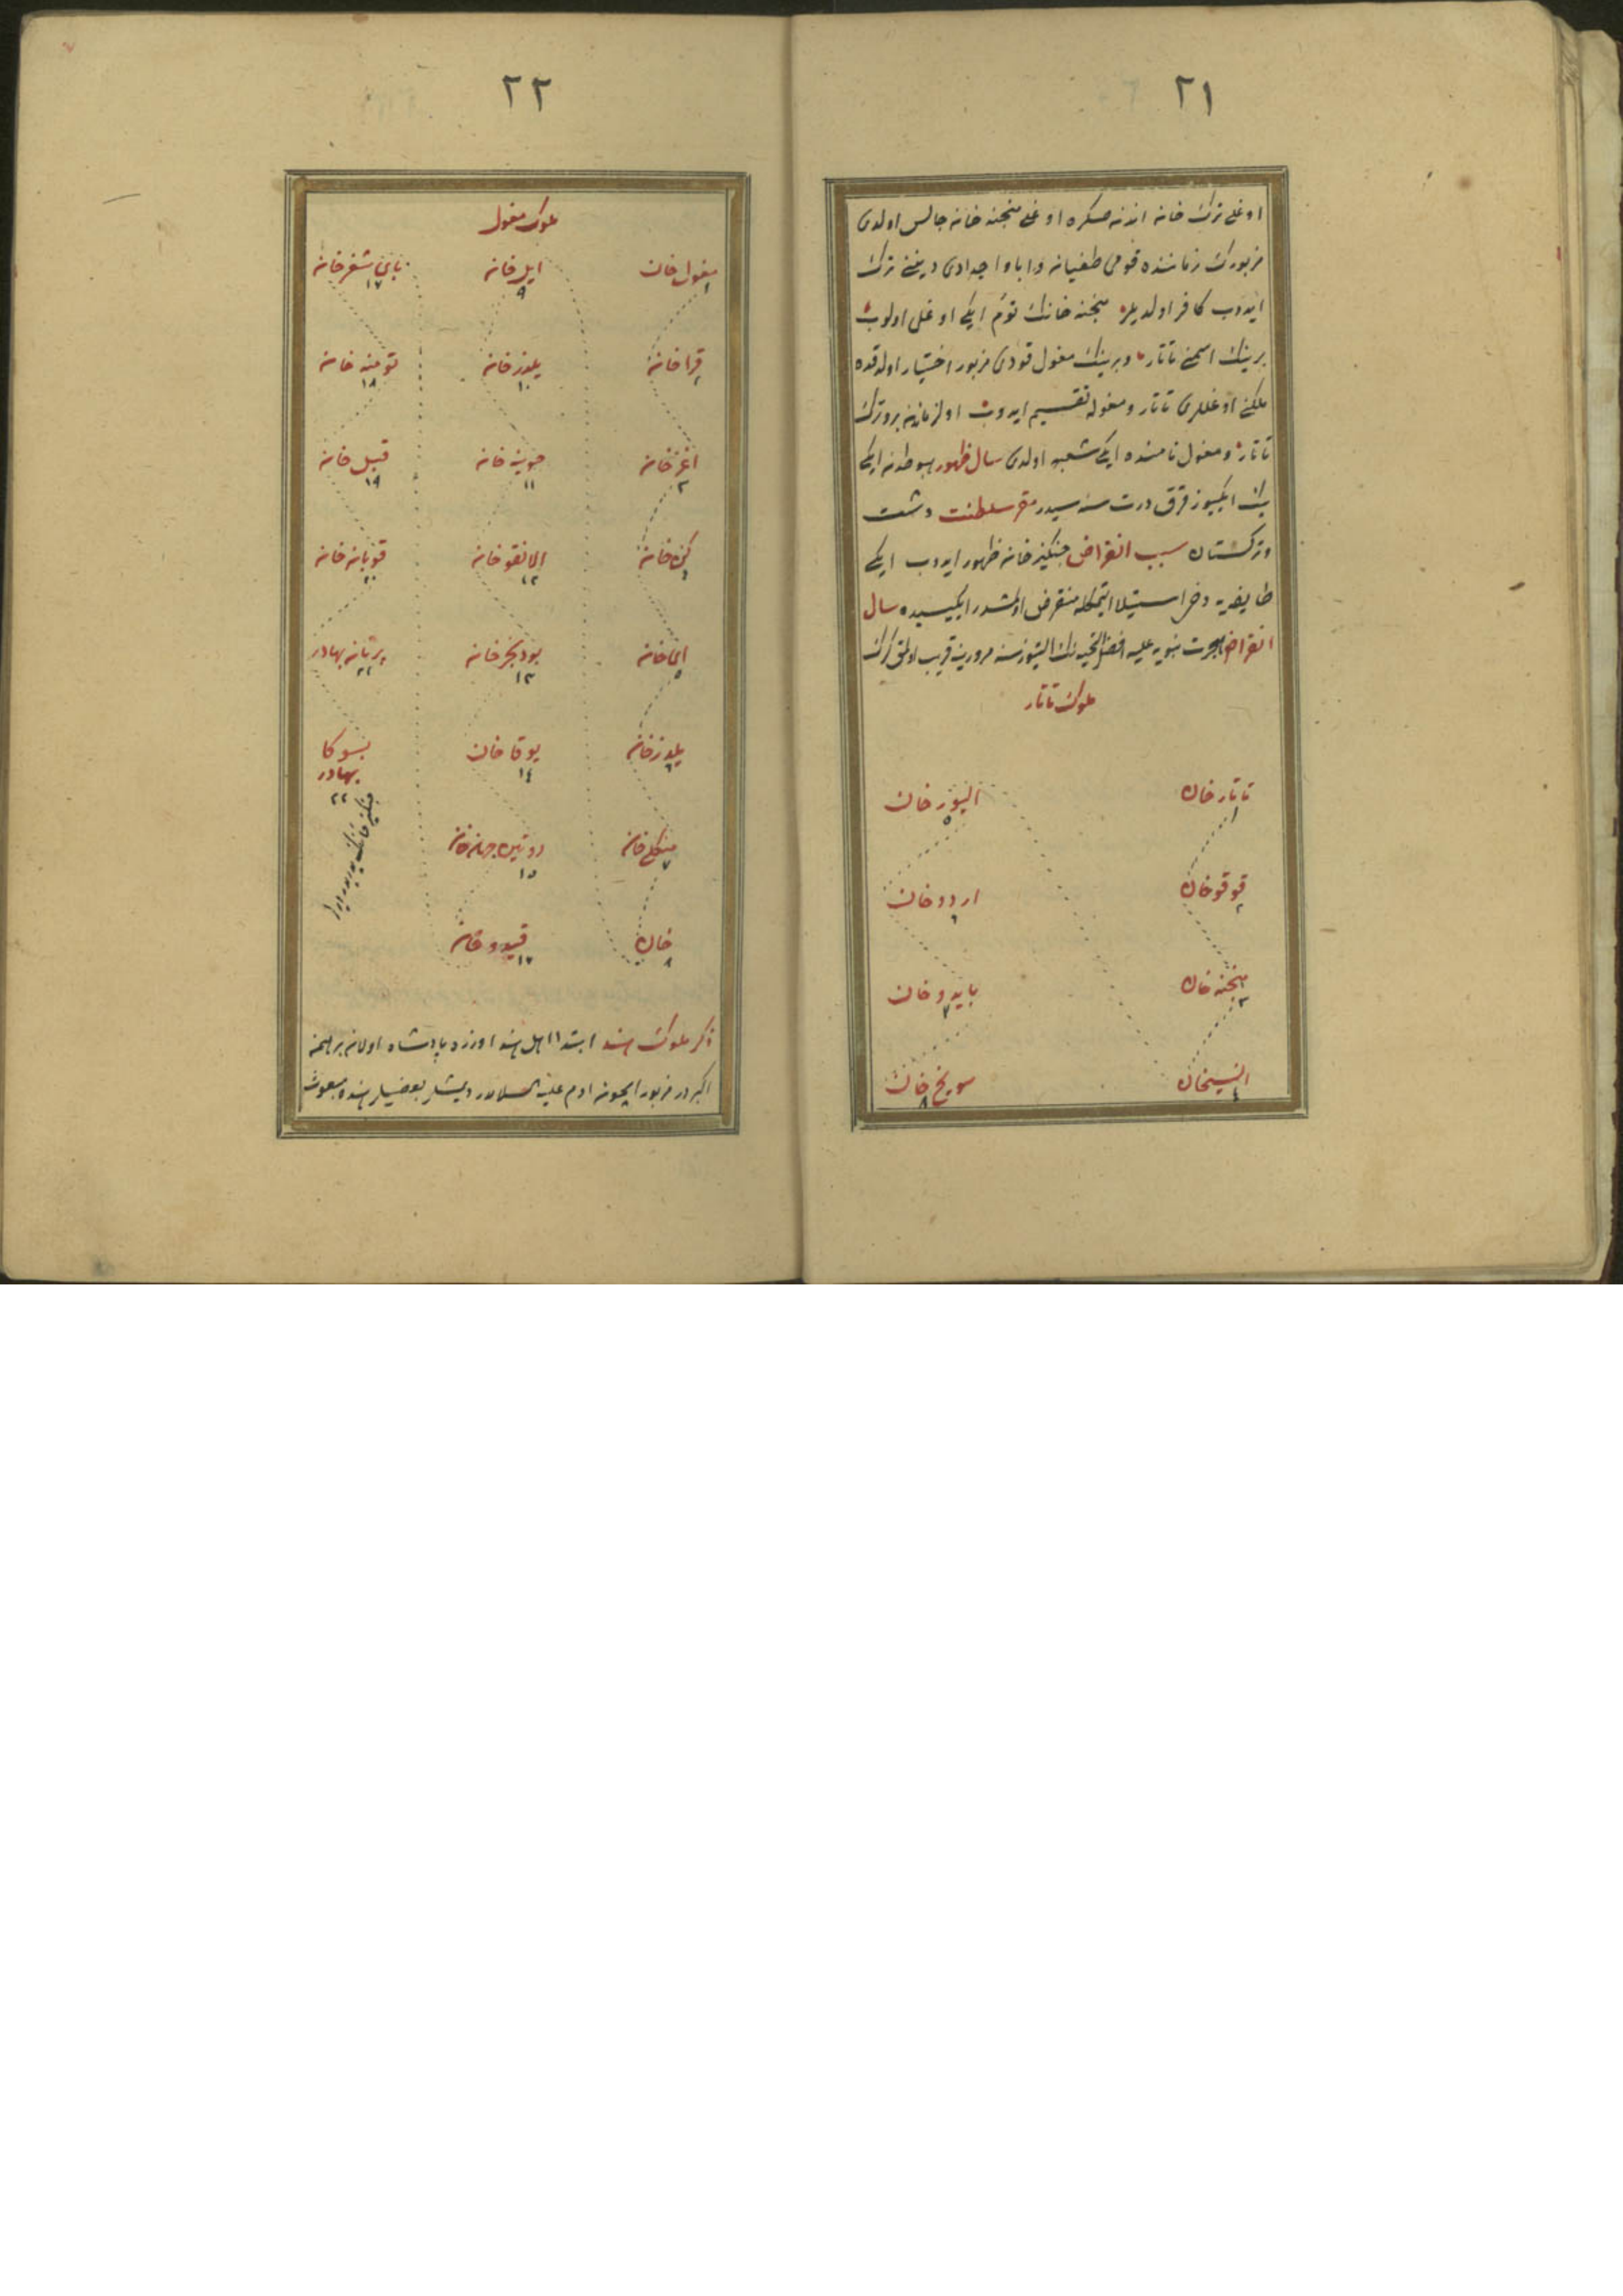 ٢١
اوغلی ترك خان اندنصكره اوغلی منجنه خان جالس اولدی
مزبورك زماننده قومی طغیان و ابا و اجدادی دیننی ترك
ایدوب كافر اولدیلر منجنه خانك توئم ایكی اوغلی اولوب
برینك اسمنی تاتار وبرینك مغول قودی مزبور اختیار اولدقده
ملكنی اوغللری تاتار ومغوله تقسیم ایدوب اول زماندنبرو ترك
تاتار ومغول نامنده ایكی شعبه اولدی سال ظهور هبوطدن ایكی
بیك ایكیوز قرق درت سنه سیدر مقر سلطنت دشت
وتركستان سبب انقراض جنكیز خان ظهور ایدوب ایكی
طایفه یه دخی استیلا ایتمكله منقرض اولمشدر ایكیسیده سال
انقراض هجرت نبویه علیه افضل التحیه نك التیوز سنه مرورینه قریب اولمق كرك
ملوك تاتار
تاتار خان
١
قوقو خان
٢
منجنه خان
٣
النسیخان
٤
الیوز خان
٥
اردو خان
٦
بایدو خان
٧
سوینج خان
٨
٢٢
ملوك مغول
مغول خان
١
قرا خان
٢
اغز خان
٣
كن خان
٤
ای خان
٥
یلدز خان
٦
منكلی خان
٧
خان
٨
ایل خان
٩
یلدز خان
١٠
جوینه خان
١١
الانقو خان
١٢
بودنجز خان
١٣
بوقا خان
١٤
دوتین خان
١٥
قیدو خان
١٦
بای شنغر خان
١٧
تومنه خان
١٨
قبل خان
١٩
قوبان خان
٢٠
برتان بهادر
٢١
یسوكا
بهادر
٢٢
جنكیز خانك پدریدر
ذكر ملوك هند ابتدا اهل هند اوزره پادشاه اولان برهمن
اكبردر مزبور ایچون ادم علیه السلامدر دیمشلر بعضیلر هنده مبعوث